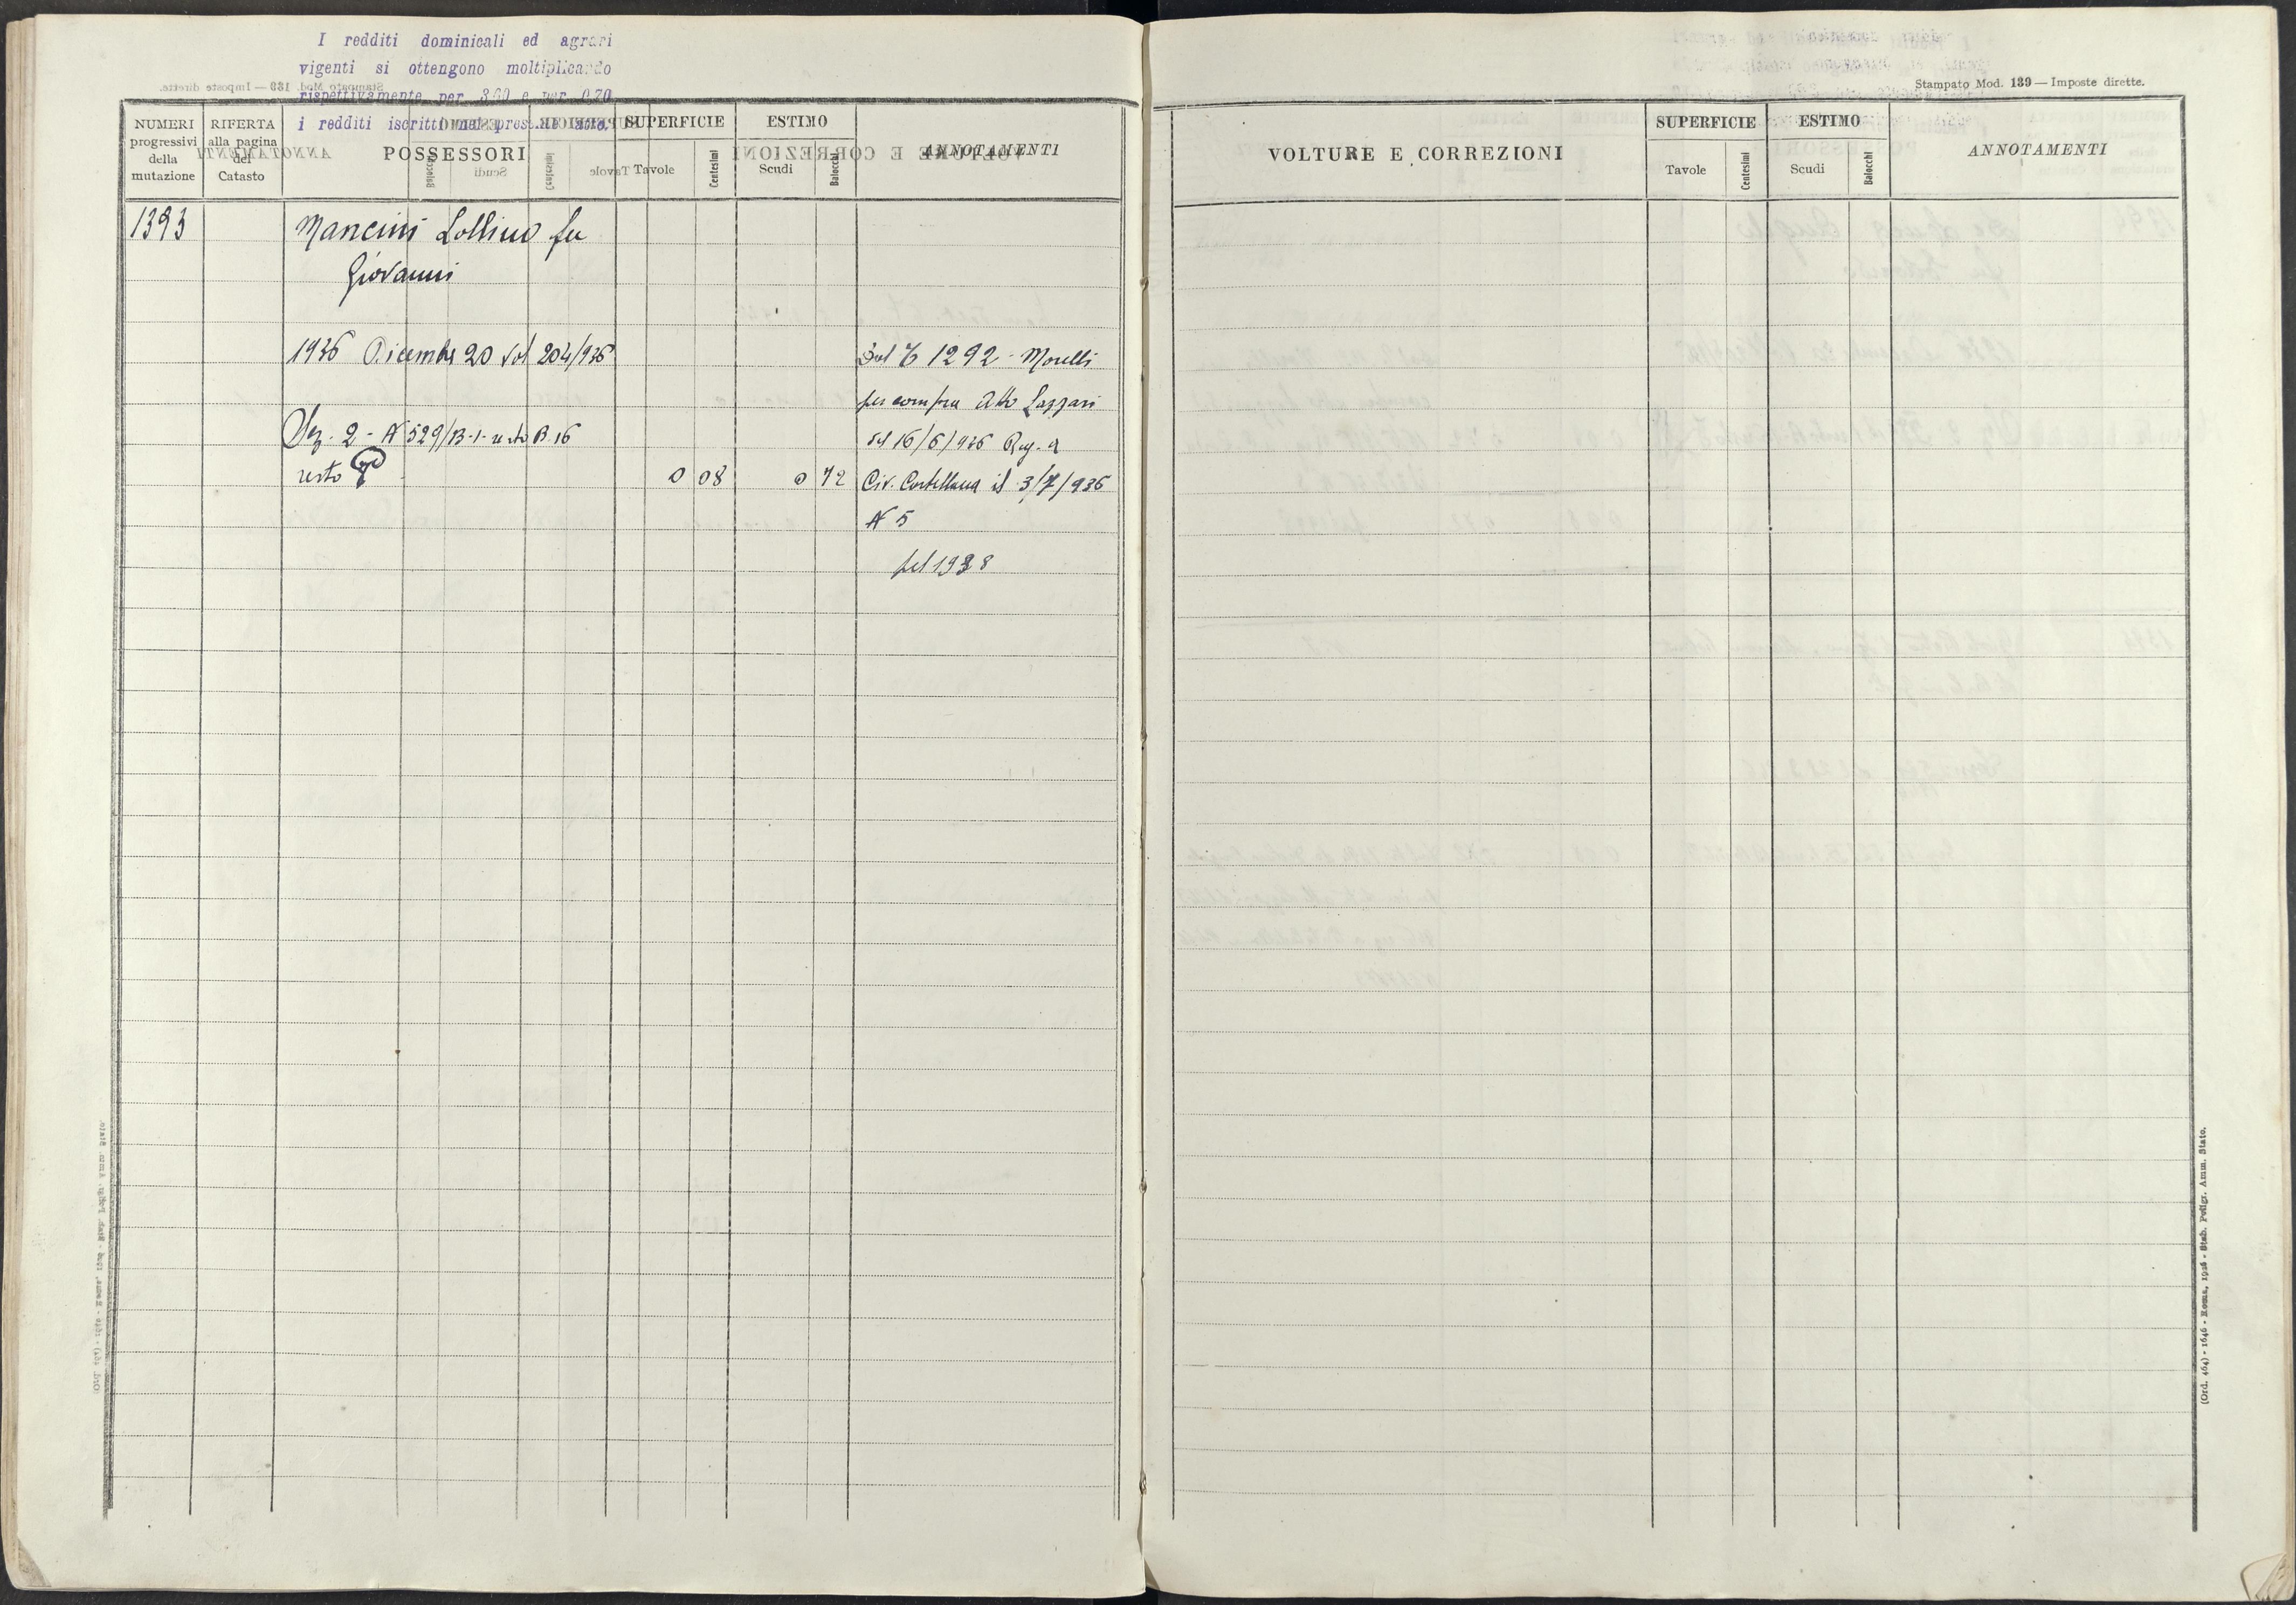 I redditi dominicali ed agrari
vigenti si ottengono moltiplicando
rispettivamente per 3,60 e per 0,70
i redditi iscritti nel presente atto.
NUMERI progressivi della mutazione
RIFERTA alla pagina del Catasto
POSSESSORI
SUPERFICIE
Tavole
Centesimi
ESTIMO
Scudi
Baiocchi
ANNOTAMENTI
1393
Mancini Lollino fu
Giovanni
1936 Dicembre 20 Vol 204/936
Sez. 2 - N 529/B-1- resto B.16
resto
0 08 0 72
Dal 1292 - Morelli
per compra Atto Lazzari
del 16/6/936 Reg. a
Civ. Castellana il 3/7/936
N 5
pel 1938
Stampato Mod. 139 — Imposte dirette.
VOLTURE E CORREZIONI
SUPERFICIE
Tavole
Centesimi
ESTIMO
Scudi
Baiocchi
ANNOTAMENTI
(Ord. 464) - 1646 - Roma, 1926 - Stab. Poligr. Amm. Stato.